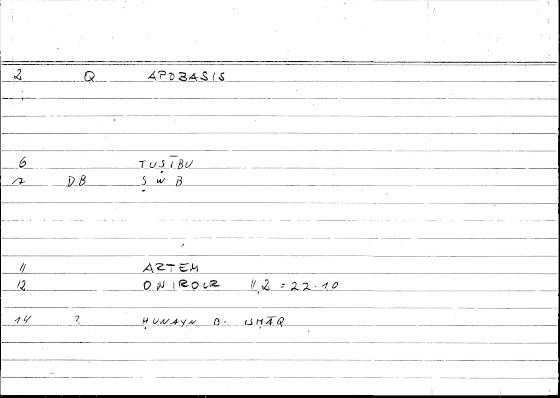 2 Q APOBASIS
6 TUṢĪBU
7 DB Ṣ W B
11 ARTEM
12 ONIROCR 11,2 = 22.10
14 ? ḤUNAYN B. ISḤĀQ